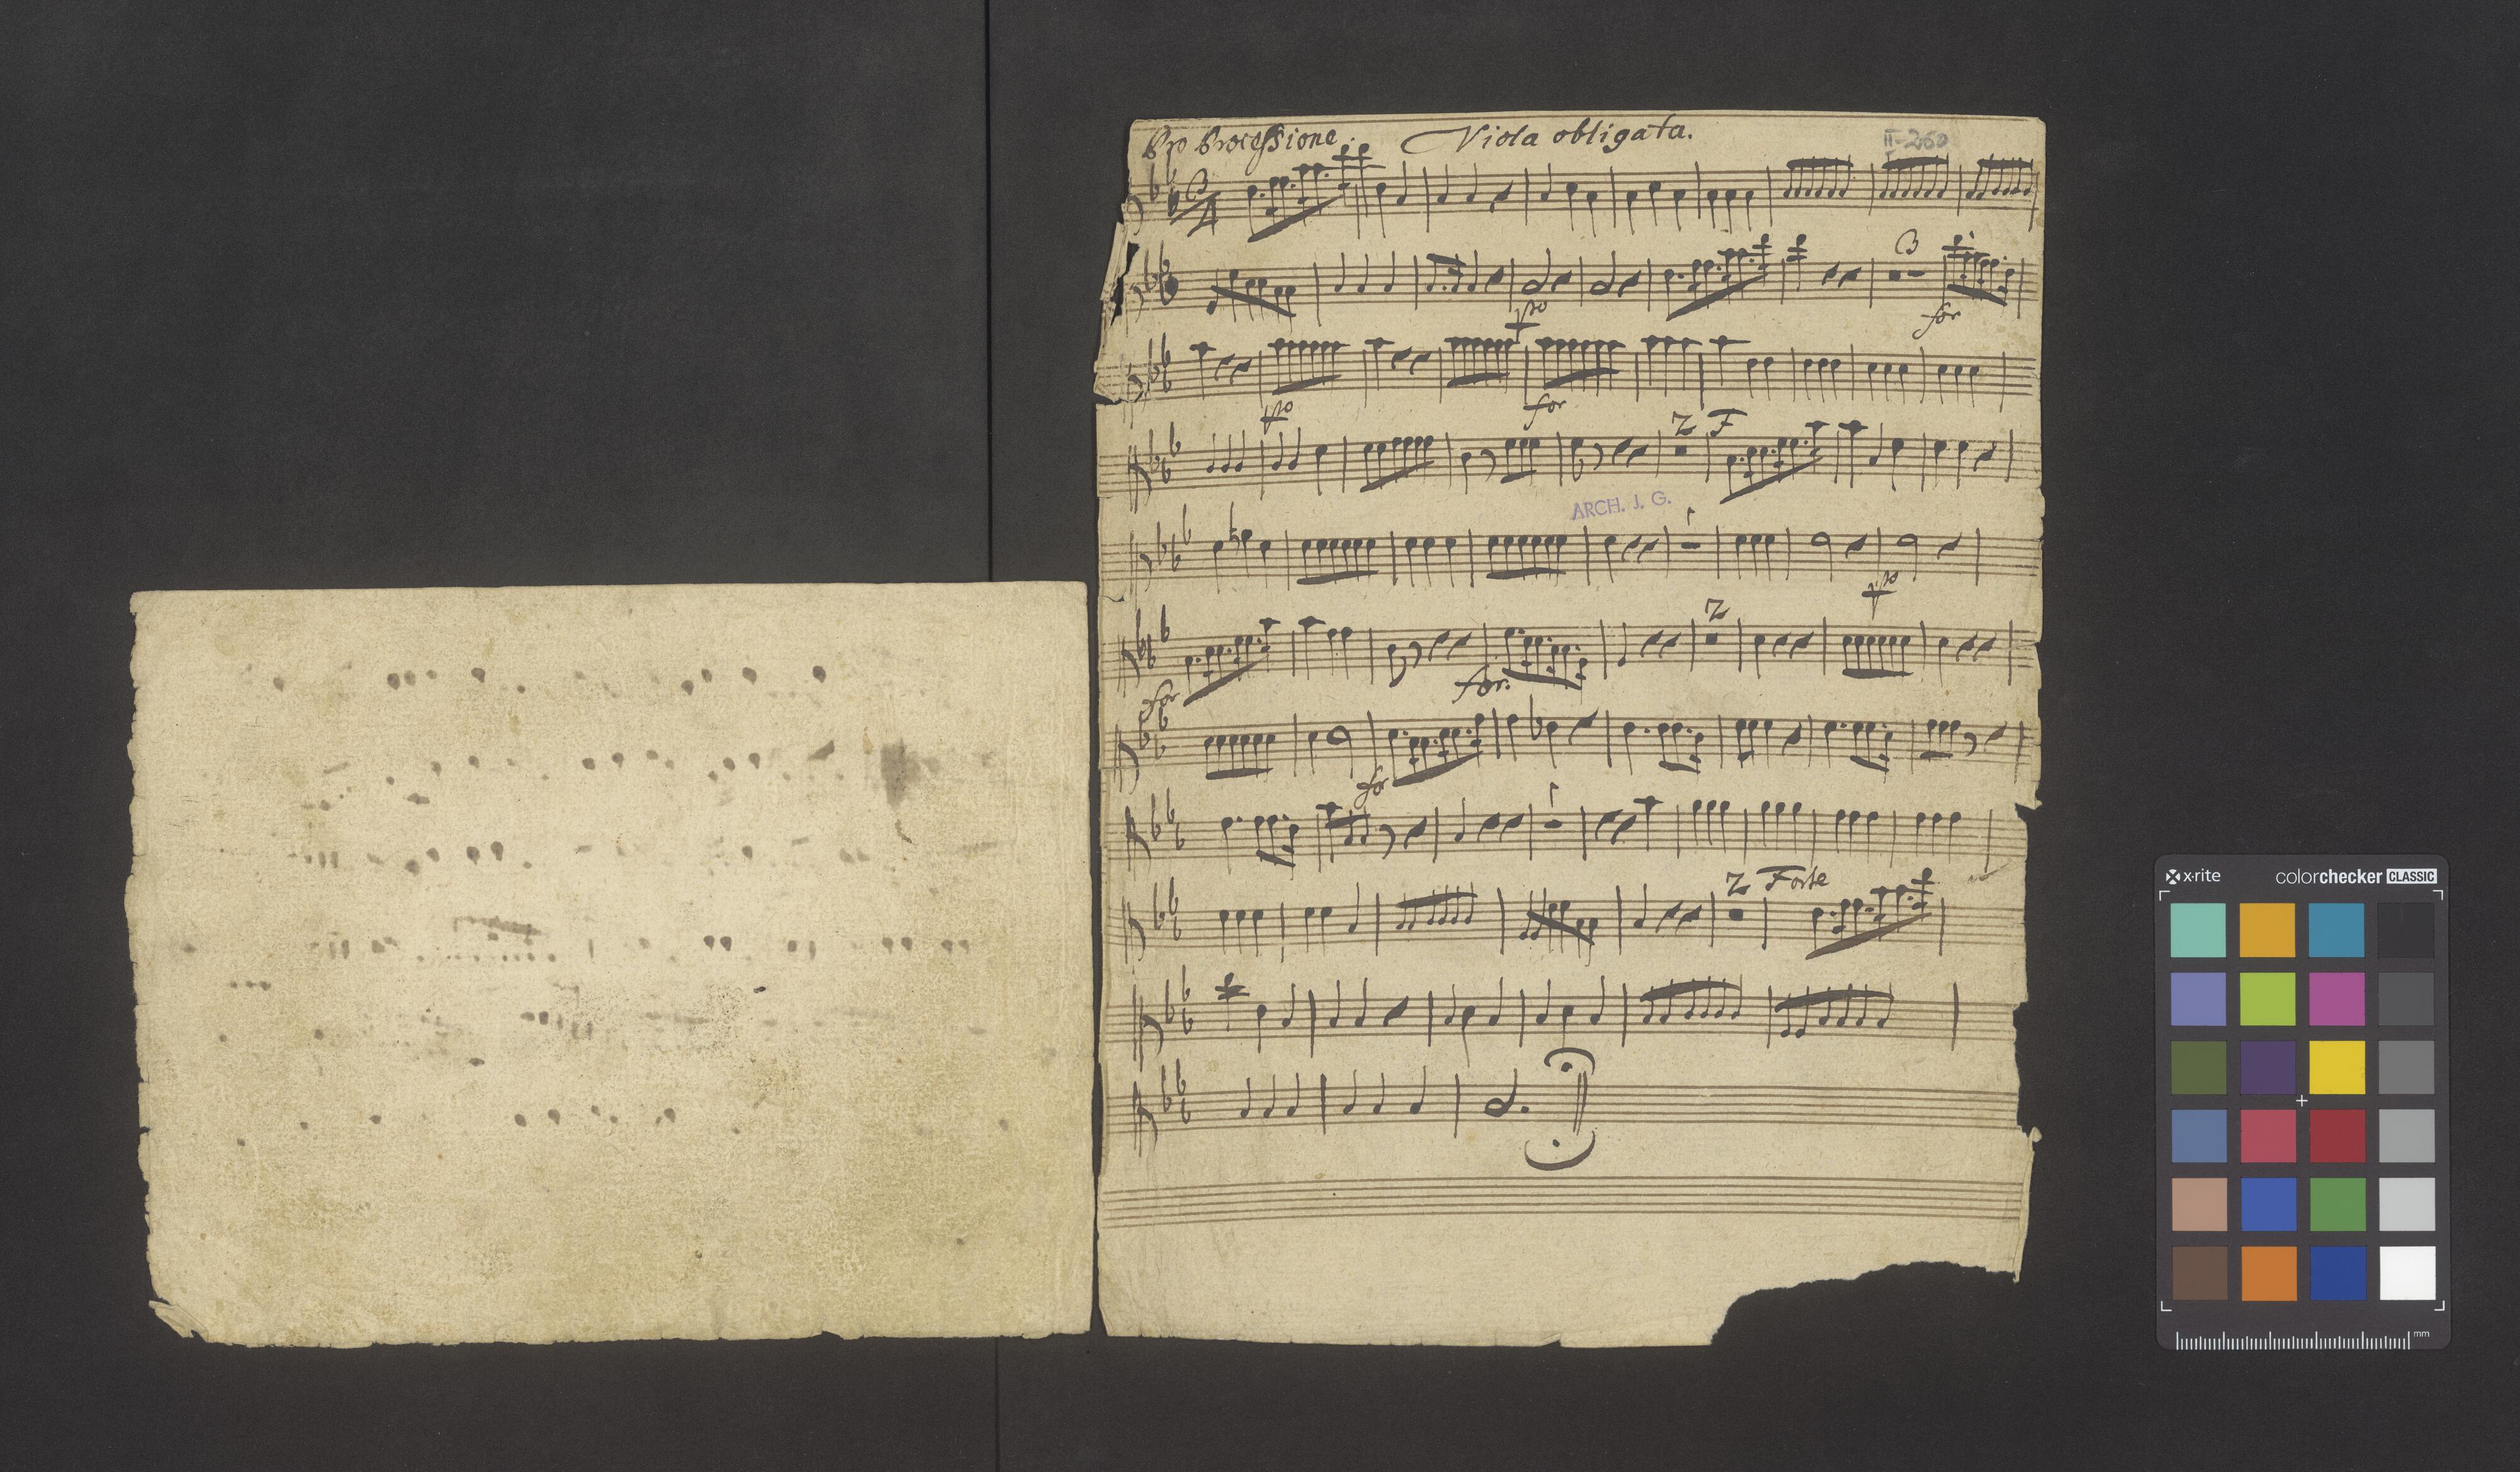 Pro Processione. Viola obligata. II-260
3
4
3
po for
po for
Z F
ARCH. J. G.
po
Z
for for.
for
Z Forte
x-rite colorchecker CLASSIC
mm